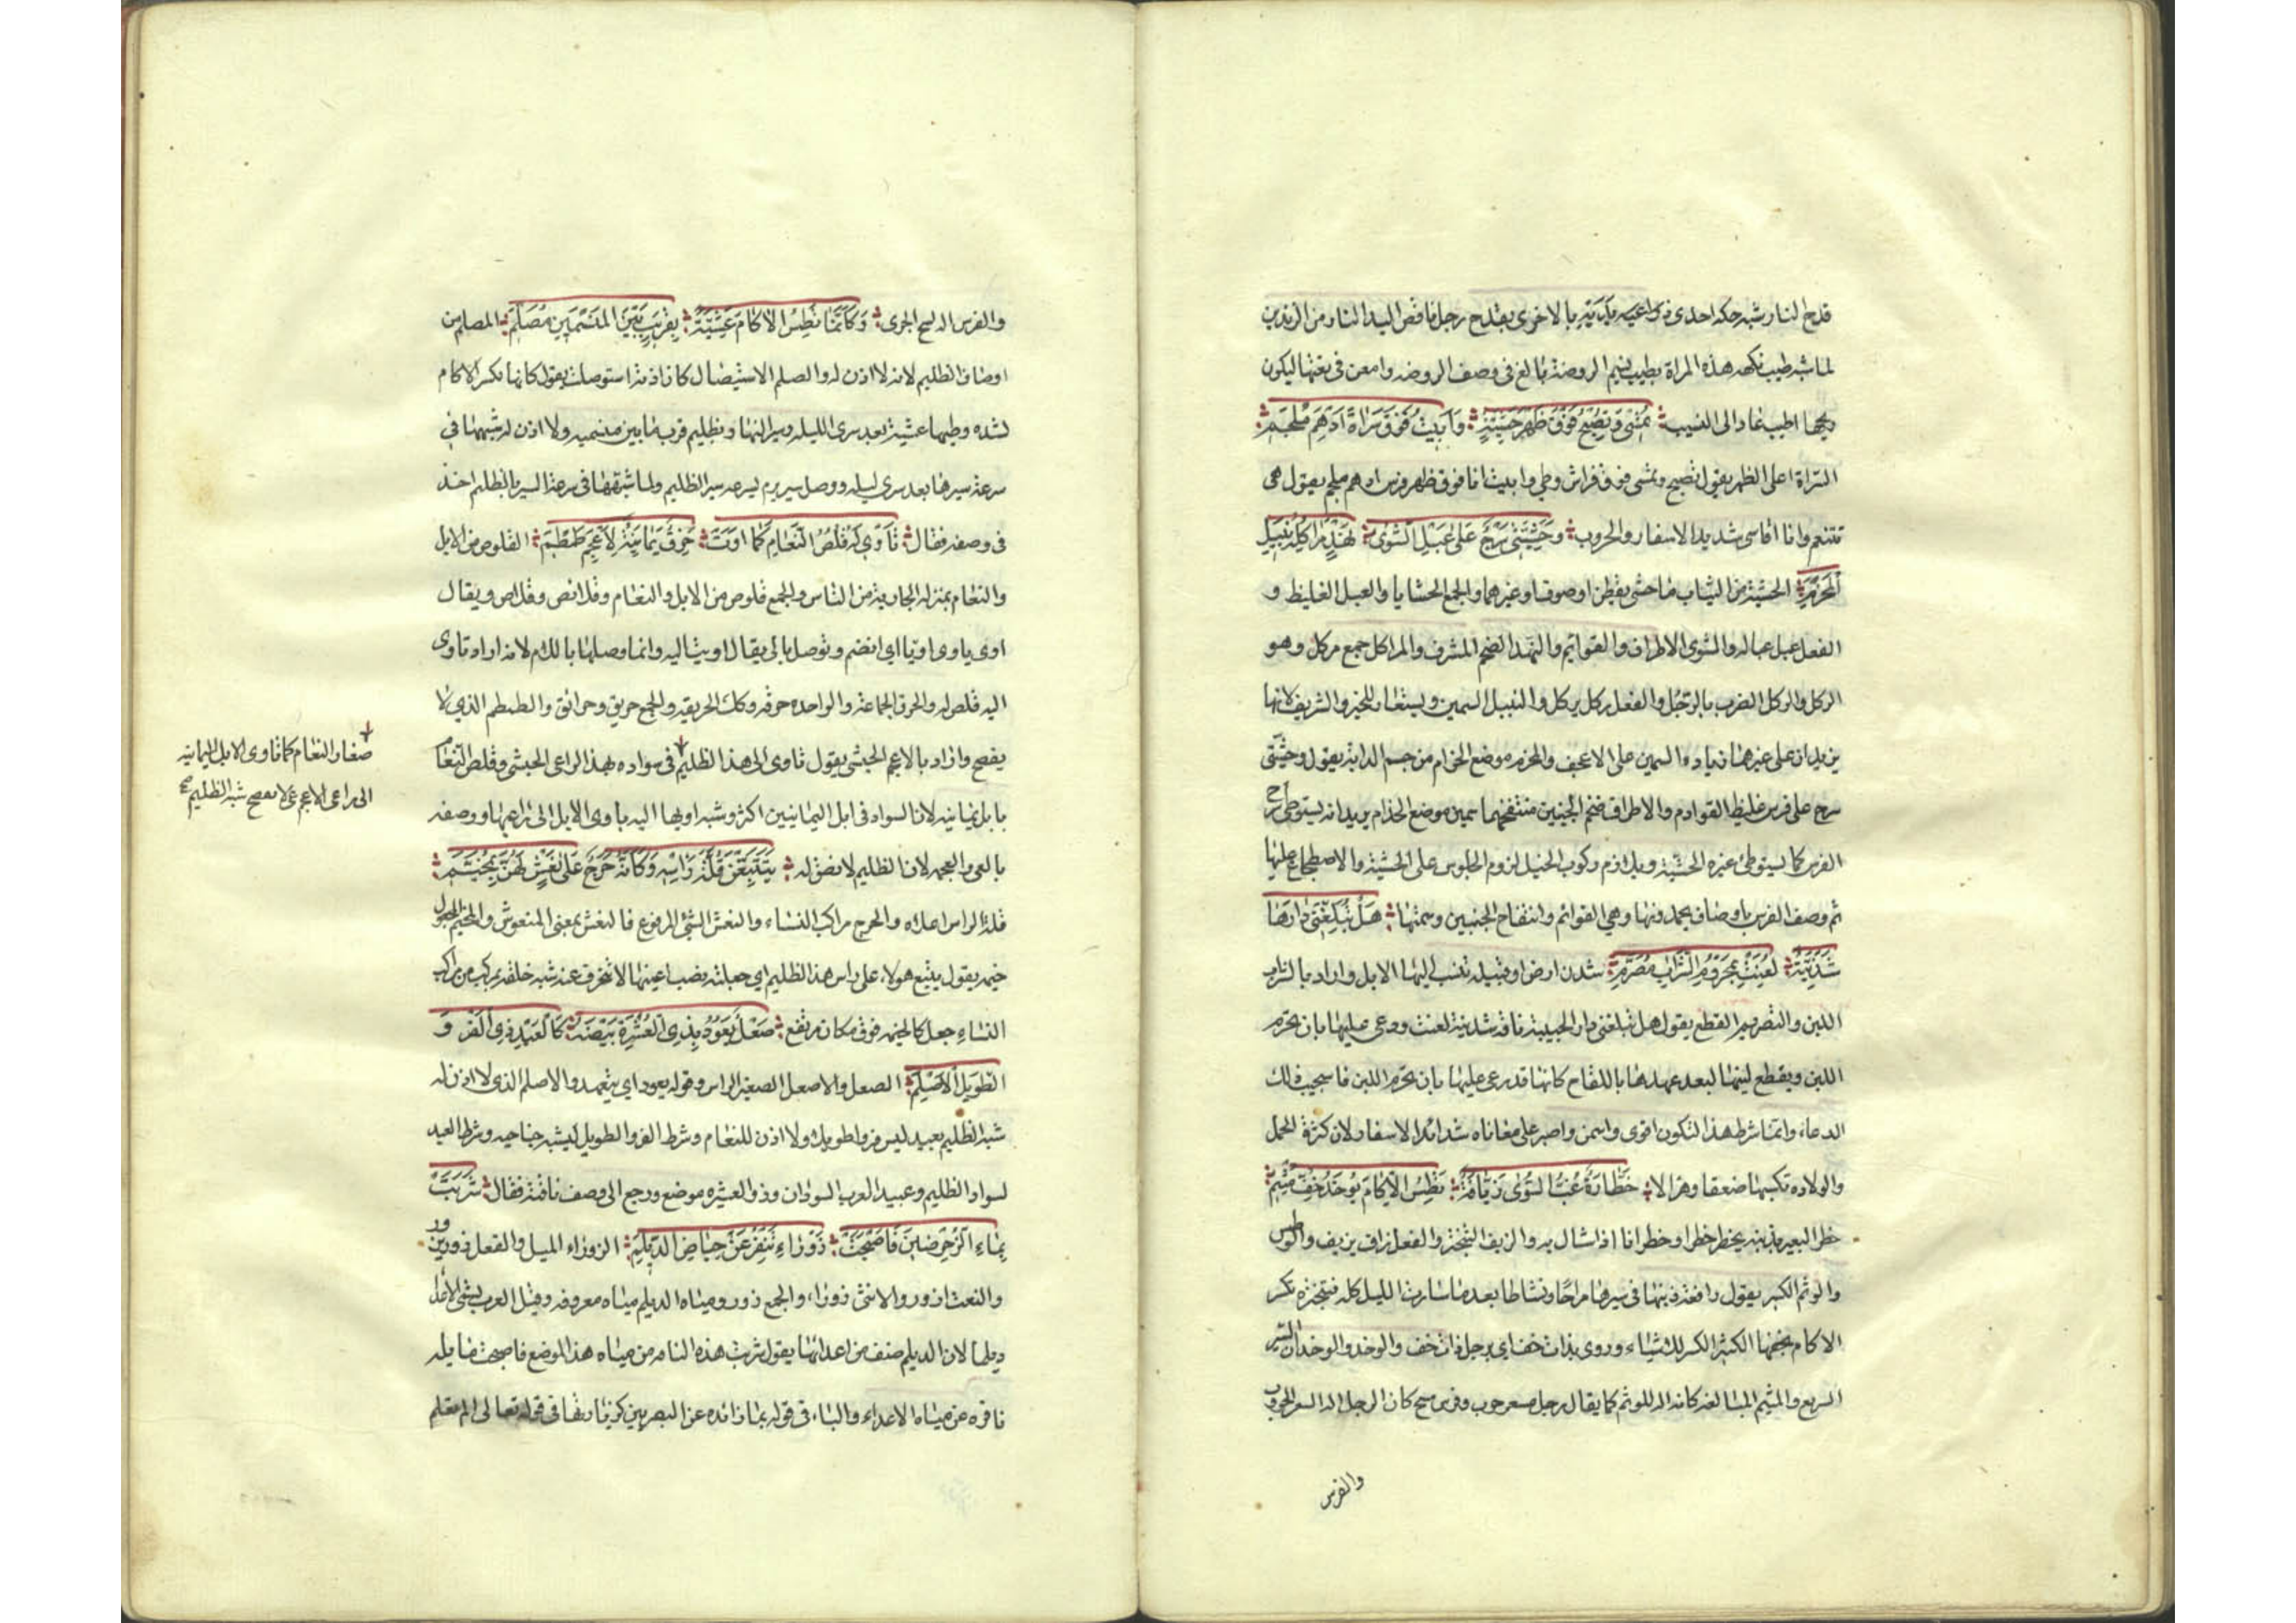 قدح النار شبه حكه احدى ذراعيه بالاخرى بقدح رجل ناقص اليد النار من الزندين
لما شبه طيب نكهه هذه المراة بطيب نسيم الروضة بالغ في وصف الروضه وامعن في نعتها ليكون
ريحها اطيب ثم عاد الى النسيب تُمْسِي وَتُصْبِحُ فَوْقَ ظَهْرِ حَشِيَّةٍ وَأَبِيتُ فَوْقَ سَرَاةِ أَدْهَمَ مُلْجَمِ
السراة اعلى الظهر يقول تصبح وتمسي فوق فراش وطي وابيت انا فوق ظهر فرس ادهم ملجم يقول هي
تتنعم وانا اقاسي شديد الاسفار والحروب وَحَشِيَّتِي سَرْجٌ عَلَى عَبْلِ الشَّوَى نَهْدٍ مَرَاكِلُهُ نَبِيلِ
الْمَحْزِمِ الحشية من الثياب ما حشي بقطن او صوف او غيرهما والجمع الحشايا والعبل الغليظ و
الفعل عبل عباله والشوى الاطراف والقوائم والنهد الضخم المشرف والمراكل جمع مركل وهو
الركل والركل الضرب بالرجل والفعل ركل يركل والنبيل السمين ويستعار للخير والشريف لانها
يزيدان على غيرهما زيادة السمين على الاعجف والمحزم موضع الحزام من جسم الدابة يقول وحشيتي
سرج على فرس غليظ القوادم والاطراف ضخم الجنبين منتفخهما سمين موضع الحزام يريد انه يستوطي سرج
الفرس كما يستوطي غيره الحشية ويلازم ركوب الخيل لزوم الجلوس على الحشية والاضطجاع عليها
ثم وصف الفرس باوصاف يحمدونها وهي القوائم وانتفاخ الجنبين وسمنها هَلْ تُبْلِغَنِّي دَارَهَا
شَدَنِيَّةٌ لُعِنَتْ بِمَحْرُومِ الشَّرَابِ مُصَرَّمِ شدن ارض او قبيله تنسب اليها الابل واراد بالشراب
اللبن والتصريم القطع يقول هل تبلغني دار الحبيبة ناقة شدنية لعنت ودعي عليها بان تحرم
اللبن ويقطع لبنها لبعد عهدها باللقاح كانها قد دعي عليها بان تحرم اللبن فاستجيب ذلك
الدعاء وانما شرط هذا لتكون اقوى واسمن واصبر على معاناه شدائد الاسفار لان كثرة الحمل
والولاده تكسبها ضعفا وهزالا خَطَّارَةٌ غِبَّ السُّرَى زَيَّافَةٌ تَطِسُ الْآكَامَ بِوَخْدِ خُفٍّ مِيثَمِ
خطر البعير بذنبه يخطر خطرا وخطرانا اذا شال به والزيف التبختر والفعل زاف يزيف والوطس
والوثم الكسر يقول رافعة ذنبها في سيرها مراحا ونشاطا بعد ما سارت الليل كله متبخترة تكسر
الاكام بخفها الكثير الكسر للاشياء وروى بذات خف اي برجل ذات خف والوخد والوخدان السير
السريع والميثم المبالغه كانه اله للوثم كما يقال رجل مسعر حرب وفرس مسح كان الرجل اله لسعر الحروب
والفرس
والفرس اله لسح الجرى وَكَأَنَّمَا تَطِسُ الْآكَامَ عَشِيَّةً بِقَرِيبِ بَيْنَ الْمَنْسِمَيْنِ مُصَلَّمِ المصلم من
اوصاف الظليم لانه لا اذن له والصلم الاستيصال كان اذنه استوصلت يقول كانها تكسر الاكام
لشده وطيها عشية بعد سرى الليل وسير النهار بظليم قرب ما بين منسميه ولا اذن له شبهها في
سرعة سيرها بعد سرى ليله ووصل سير يوم بسرعه سير الظليم ولما شبهها في سرعة السير بالظليم اخذ
في وصفه فقال تَأْوِي لَهُ قُلُصُ النَّعَامِ كَمَا أَوَتْ حِزَقٌ يَمَانِيَةٌ لِأَعْجَمَ طِمْطِمِ القلوص من الابل
والنعام بمنزله الجارية من الناس والجمع قلوص من الابل والنعام وقلائص وقلاص ويقال
اوى ياوى اويا اي انضم ويوصل بالى يقال اويت اليه وانما وصلها باللام لانه اراد تاوى
اليه قلص له والحزق الجماعة والواحده حزقه وكذلك الحزيقه والجمع حزيق وحزائق والطمطم الذي لا
يفصح واراد بالاعجم الحبشي يقول تاوى الى هذا الظليم في سواده بهذا الراعى الحبشي وقلص النعام
بابل يمانيه لان السواد في ابل اليمانيين اكثر وشبه اويها اليه باوى الابل الى راعيها ووصفه
بالعى والعجمه لان الظليم لا نطق له يَتْبَعْنَ قُلَّةَ رَأْسِهِ وَكَأَنَّهُ حَرَجٌ عَلَى نَعْشٍ لَهُنَّ مُخَيَّمِ
قلة الراس اعلاه والحرج مراكب النساء والنعش الشيء المرفوع فالنعش بمعنى المنعوش والمخيم المجعول
خيمه يقول يتبع هولاء على راس هذا الظليم اي جعلته نصب اعينها لا تنحرف عنه شبه خلقه بمركب من مراكب
النساء جعل كالخيمه فوق مكان مرتفع صَعْلٍ يَعُودُ بِذِي الْعُشَيْرَةِ بَيْضَهُ كَالْعَبْدِ ذِي الْفَرْوِ
الطَّوِيلِ الْأَصْلَمِ الصعل والاصعل الصغير الراس وقوله يعود اي يتعهد والاصلم الذى لا اذن له
شبه الظليم بعبد لبس فروا طويلا ولا اذن للنعام وشرط الفرو الطويل ليشبه جناحيه وشرط العبد
لسواد الظليم وعبيد العرب السودان وذو العشيره موضع ورجع الى وصف ناقته فقال شَرِبَتْ
بِمَاءِ الدُّحْرُضَيْنِ فَأَصْبَحَتْ زَوْرَاءَ تَنْفِرُ عَنْ حِيَاضِ الدَّيْلَمِ الزوراء الميل والفعل زور يزور
والنعت ازور والانثى زوراء والجمع زور ومياه الديلم مياه معروفه وقيل العرب تسمى الاعداء
ديلما لان الديلم صنف من اعدائها يقول شربت هذه الناقه من مياه هذا الموضع فاصبحت مايله
نافره عن مياه الاعداء والباء في قوله بماء زائده عند البصريين كزيادتها في قوله تعالى الم يعلم
صغار النعام كما تاوى الابل اليمانيه
الى راعى اعجم عى لا يفصح شبه الظليم صح